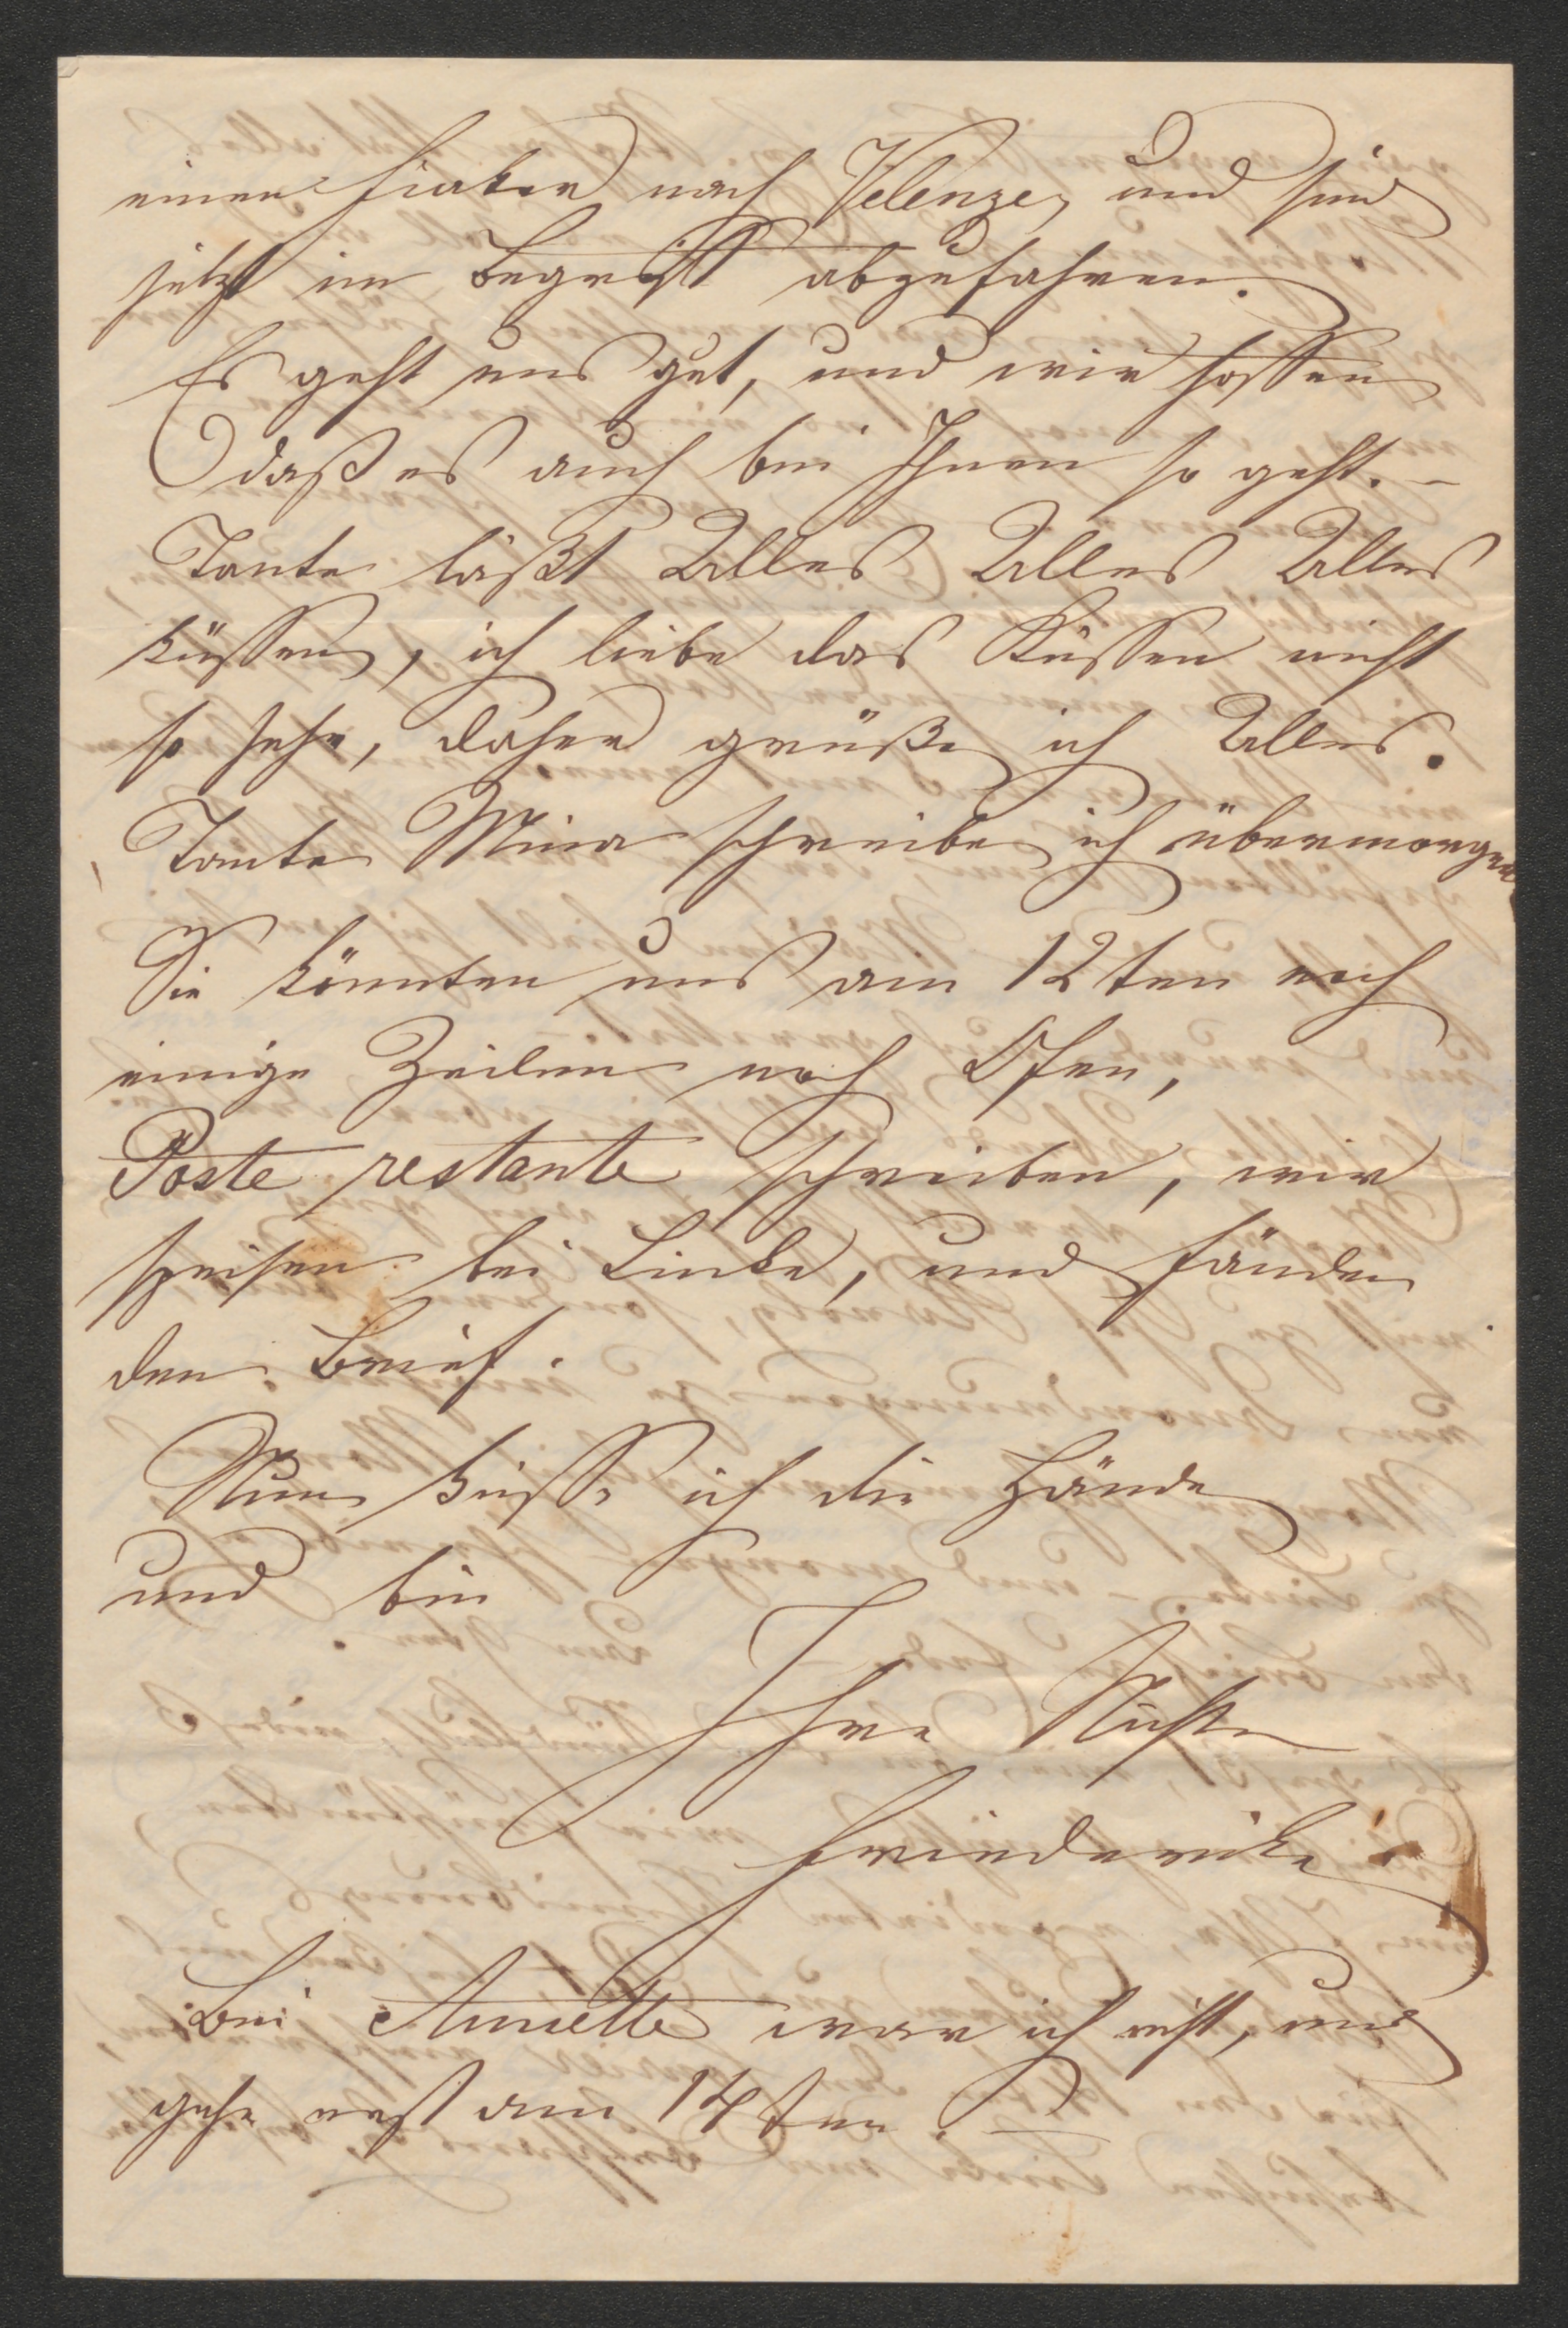 einen Fiaker nach Velenze, und sind
jetzt im Begriff abzufahren.
Es geht uns gut, und wir hoffen
daß es auch bei Ihnen so geht. –
Tante läßt Alles Alles Alles
küssen, ich liebe das Küssen nicht
so sehr, daher grüße ich Alles.
Tante Mina schreibe ich übermorgen
Sie könnten uns am 12ten noch
einige Zeilen nach Ofen,
Poste restante schreiben, wir
speisen bei Linke, und fänden
den Brief.
Nun küsse ich die Hände
und bin
Ihre Nichte
Friederike
Bei Annette war ich nicht, und
gehe erst am 14ten. –